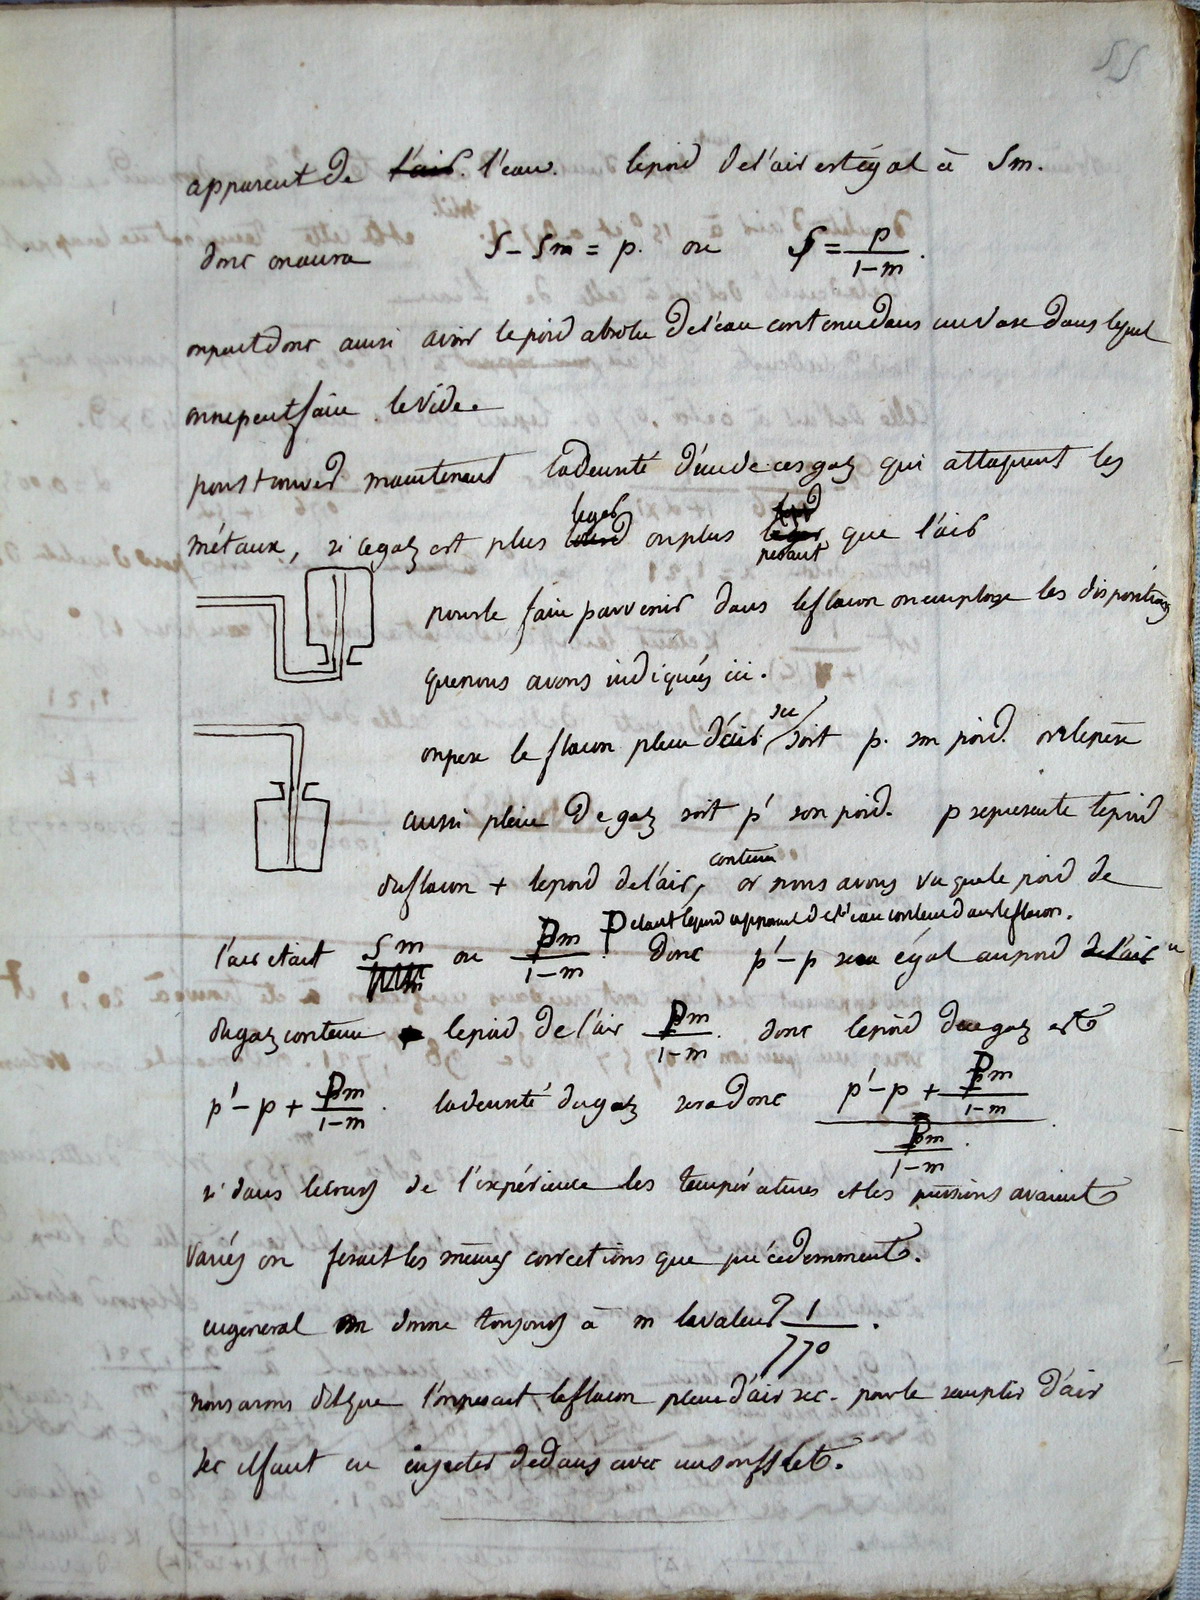 55
apparent de l'air. l'eau. le poid de l'air est égal à Sm.
donc on aura S - Sm = p. ou S = p/(1-m).
on peut donc aussi avoir le poid absolu de l'eau contenu dans un vase dans lequel
on ne peut faire le vide
pour trouver maintenant la densité d'un de ces gaz qui attaquent les
métaux, si ce gaz est plus lourd leger ou plus leger lourd pesant que l'air
pour le faire parvenir dans le flacon on emploie les dispositions
que nous avons indiqués ici.
on pese le flacon plein d'air sec soit p. son poid. on le pèse
aussi plein de gaz soit p' son poid. p represente le poid
du flacon + le poid de l'air, contenu or nous avons vu que le poid de
P etant le poid apparent de l'eau contenu dans le flacon.
l'air etait Sm ou Pm/(1-m). donc p'-p sera égal au poid de l'air
du gaz contenu le poid de l'air Pm/(1-m). donc le poid du gaz est
p'-p + Pm/(1-m). la densité du gaz sera donc (p'-p + Pm/(1-m))/(Pm/(1-m)).
si dans le cours de l'expérience les températures et les pressions avaient
variés on ferait les mêmes corrections que précédemment.
en general on donne toujours à m la valeur 1/770.
nous avons dit que l'on pesait le flacon plein d'air sec. pour le remplir d'air
sec il faut en injecter dedans avec un soufflet.